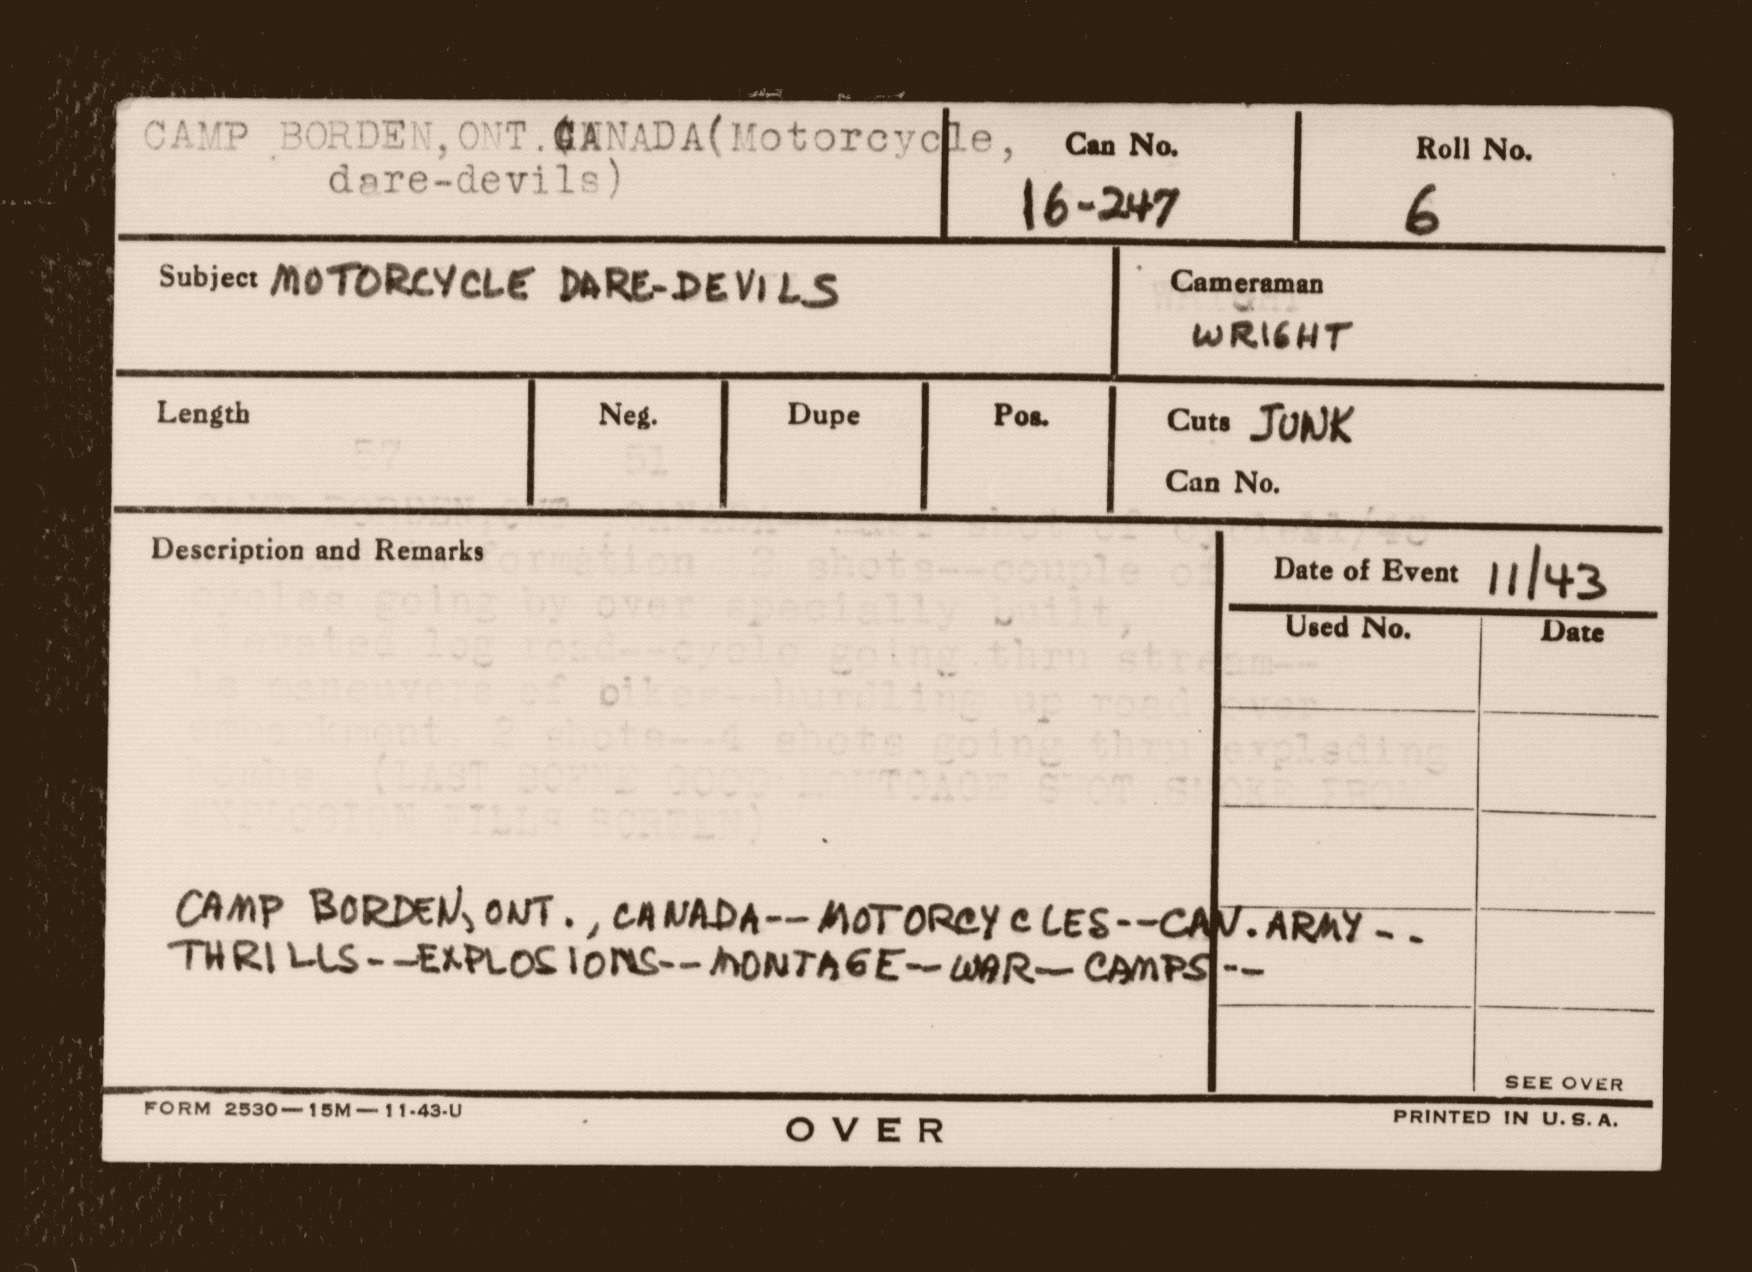 CAMP BORDEN,ONT.CANADA(Motorcycle,
dare-devils)
Can No.
16-247
Roll No.
6
Subject MOTORCYCLE DARE-DEVILS
Cameraman
WRIGHT
Length
Neg.
Dupe
Pos.
Cuts JUNK
Can No.
57 51
Description and Remarks
CAMP BORDEN,ONT., CANADA-- shot of 11/43
formation 2 shots--couple of
cycles going by over specially built,
elevated log road--cycle going thru stream--
maneuvers of bikes--hurdling up road over
embankment 2 shots--4 shots going thru exploding
bombs. (LAST SCENE GOOD MONTGAGE SHOT SMOKE FROM
EXPLOSION FILLS SCREEN)
Date of Event 11/43
Used No.
Date
CAMP BORDEN, ONT., CANADA--MOTORCYCLES--CAN. ARMY--
THRILLS--EXPLOSIONS--MONTAGE--WAR--CAMPS--
SEE OVER
FORM 2530—15M—11-43-U
OVER
PRINTED IN U.S.A.